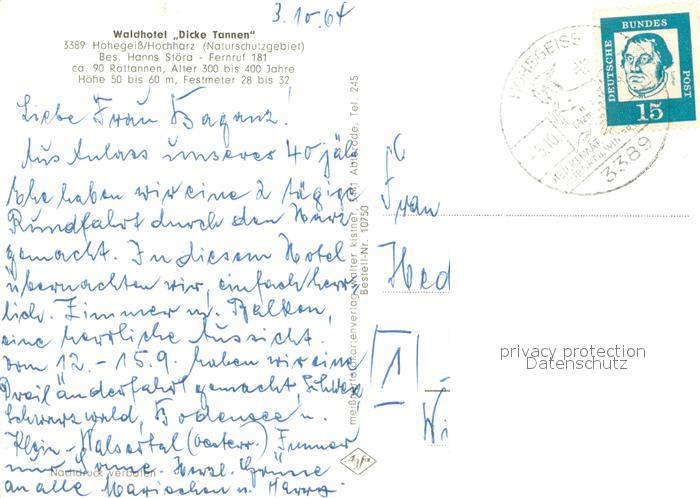 3.10.64
Waldhotel „Dicke Tannen"
3389 Hohegeiß/Hochharz (Naturschutzgebiet)
Bes. Hanns Störa - Fernruf 181
ca. 90 Rottannen, Alter 300 bis 400 Jahre
Höhe 50 bis 60 m, Festmeter 28 bis 32
Liebe Frau Baganz!
Aus Anlass unseres 40 jäh
Ehe haben wir eine 2 tägige
Rundfahrt durch den Harz
gemacht. In diesem Hotel
übernachten wir, einfach herr
lich. Zimmer m. Balkon,
eine herrliche Aussicht.
Vom 12. - 15.9. haben wir eine
Dreiländerfahrt gemacht, Schweiz
Schwarzwald, Bodensee u.
Klein-Walsertal (Oesterr.) Immer
nur Sonne. Herzl. Grüsse
an alle
Nachdruck verboten
Walter Kistner, Tel. 245
Bestell-Nr. 10750
Agfa
Frau
Hed
1
Wi
HOHEGEISS
-5.10.
3389
DEUTSCHE BUNDES POST
15
privacy protection
Datenschutz